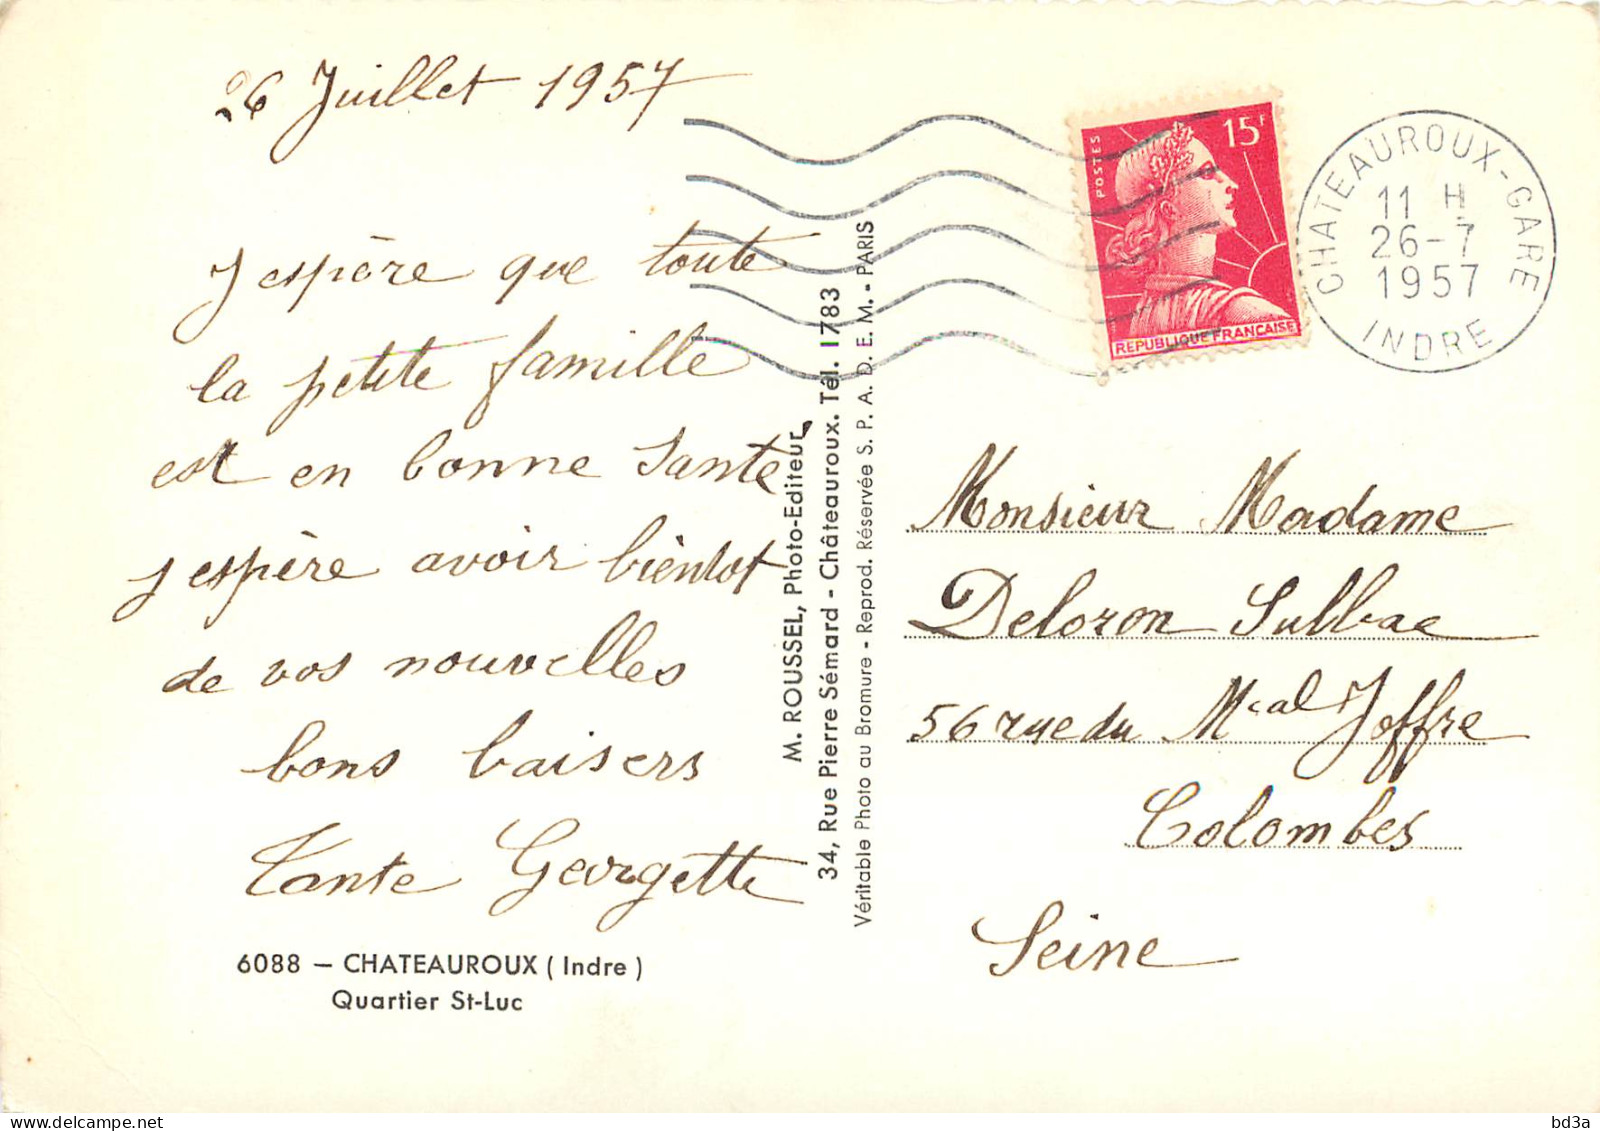 26 Juillet 1957
J espère que toute
la petite famille
est en bonne santé
j espère avoir bientot
de vos nouvelles
bons baisers
Tante Georgette
6088 – CHATEAUROUX ( Indre )
Quartier St-Luc
M. ROUSSEL, Photo-Editeur
34, Rue Pierre Sémard - Châteauroux. Tél. 1783
Véritable Photo au Bromure - Reprod. Réservée S. P. A. D. E. M. - PARIS
POSTES
15F
REPUBLIQUE FRANÇAISE
CHATEAUROUX-GARE
11 H
26-7
1957
INDRE
Monsieur Madame
Deloron
56 rue du Mcal Joffre
Colombes
Seine
bd3a